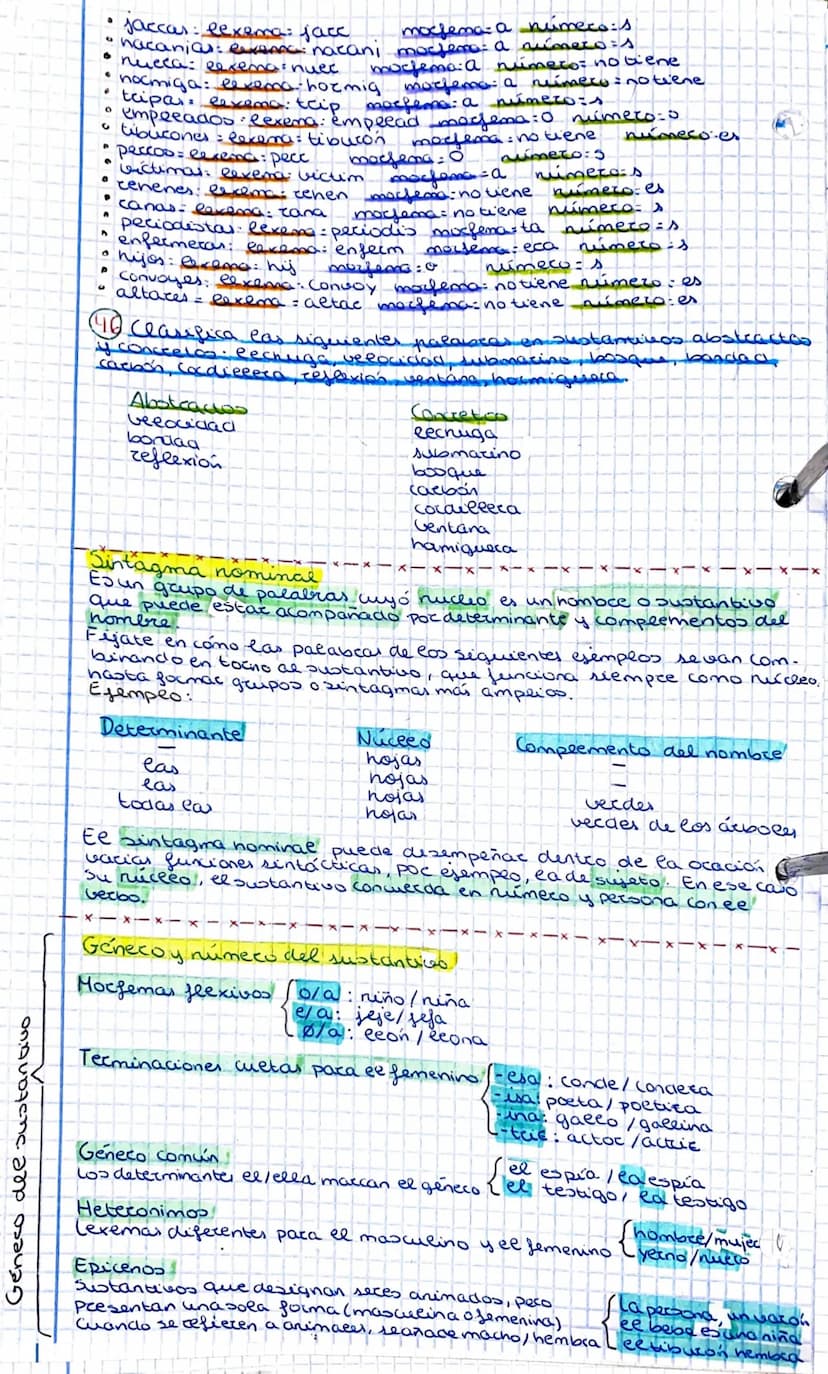 • jarras: lexema: jarr morfema: a número: s
• naranjas: lexema: naranj morfema: a número: s
• nuera: lexema: nuer morfema: a número: no tiene
• hormiga: lexema: hormig morfema: a número: no tiene
• tripas: lexema: trip morfema: a número: s
• empleados: lexema: emplead morfema: o número: s
• tiburones: lexema: tiburón morfema: no tiene número: es
• perros: lexema: perr morfema: o número: s
• víctimas: lexema: víctim morfema: a número: s
• rehenes: lexema: rehen morfema: no tiene número: es
• ranas: lexema: rana morfema: no tiene número: s
• periodistas: lexema: periodis morfema: ta número: s
• enfermeras: lexema: enferm morfema: era número: s
• hijos: lexema: hij morfema: o número: s
• convoyes: lexema: convoy morfema: no tiene número: es
• altares = lexema = altar morfema: no tiene número: es
46 Clasifica las siguientes palabras en sustantivos abstractos
y concretos: lechuga, velocidad, submarino, bosque, bondad,
carbón, cordillera, reflexión, ventana, hormiguera.
Abstractos Concretos
velocidad lechuga
bondad submarino
reflexión bosque
carbón
cordillera
ventana
hamiguera
Sintagma nominal
Es un grupo de palabras cuyo núcleo es un nombre o sustantivo
que puede estar acompañado por determinante y complementos del
nombre.
Fíjate en cómo las palabras de los siguientes ejemplos se van com-
binando en torno al sustantivo, que funciona siempre como núcleo,
hasta formar grupos o sintagmas más amplios.
Ejemplo:
Determinante Núcleo Complemento del nombre
— hojas —
las hojas —
las hojas verdes
todas las hojas verdes de los árboles
El sintagma nominal puede desempeñar dentro de la oración
varias funciones sintácticas, por ejemplo, la de sujeto. En ese caso
su núcleo, el sustantivo concuerda en número y persona con el
verbo.
Género y número del sustantivo
Género del sustantivo
Morfemas flexivos
o/a: niño/niña
e/a: jefe/jefa
Ø/a: león/leona
Terminaciones cultas para el femenino
-esa: conde/condesa
-isa: poeta/poetisa
-ina: gallo/gallina
-triz: actor/actriz
Género común:
Los determinantes el/ella marcan el género
el espía / la espía
el testigo / la testigo
Heterónimos:
Lexemas diferentes para el masculino y el femenino
hombre/mujer
yerno/nuera
Epicenos:
Sustantivos que designan seres animados, pero
presentan una sola forma (masculina o femenina)
Cuando se refieren a animales, se añade macho/hembra
La persona, un varón
el bebé es una niña
el tiburón hembra